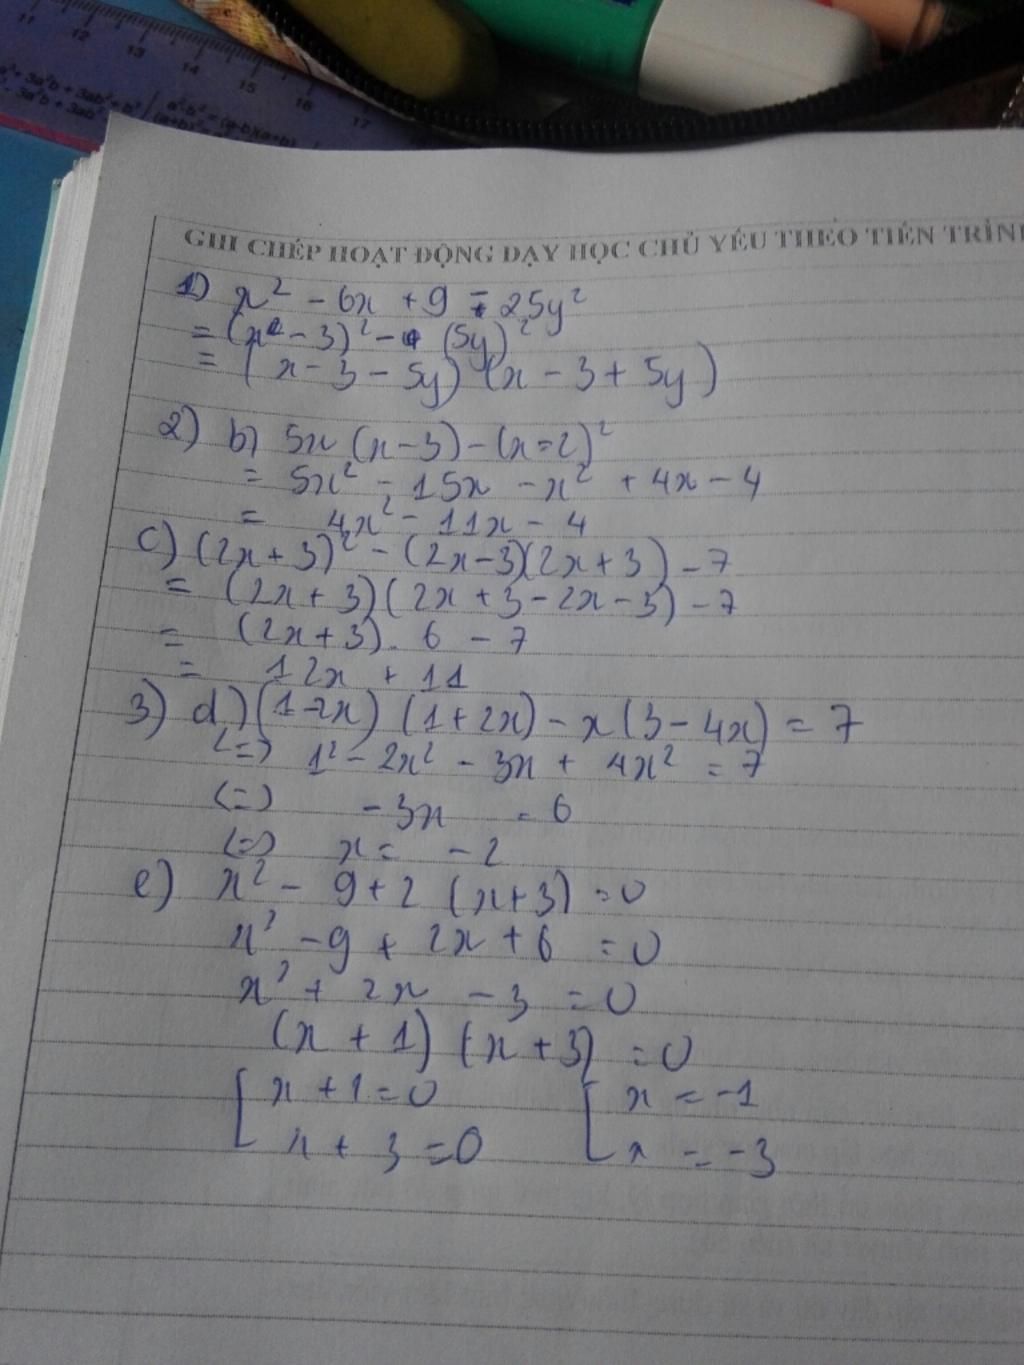 11 12 13 14 15 16 17
GHI CHÉP HOẠT ĐỘNG DẠY HỌC CHỦ YẾU THEO TIẾN TRÌNH
1) x² - 6x + 9 - 25y²
= (x - 3)² - (5y)²
= (x - 3 - 5y) (x - 3 + 5y)
2) b) 5x (x - 3) - (x - 2)²
= 5x² - 15x - x² + 4x - 4
= 4x² - 11x - 4
c) (2x + 3)² - (2x - 3)(2x + 3) - 7
= (2x + 3)(2x + 3 - 2x - 3) - 7
= (2x + 3). 6 - 7
= 12x + 11
3) d) (1 - 2x) (1 + 2x) - x (3 - 4x) = 7
<=> 1² - 2x² - 3x + 4x² = 7
<=> - 3x = 6
<=> x = - 2
e) x² - 9 + 2 (x + 3) = 0
x² - 9 + 2x + 6 = 0
x² + 2x - 3 = 0
(x + 1) (x + 3) = 0
[ x + 1 = 0 [ x = -1
x + 3 = 0 x = -3